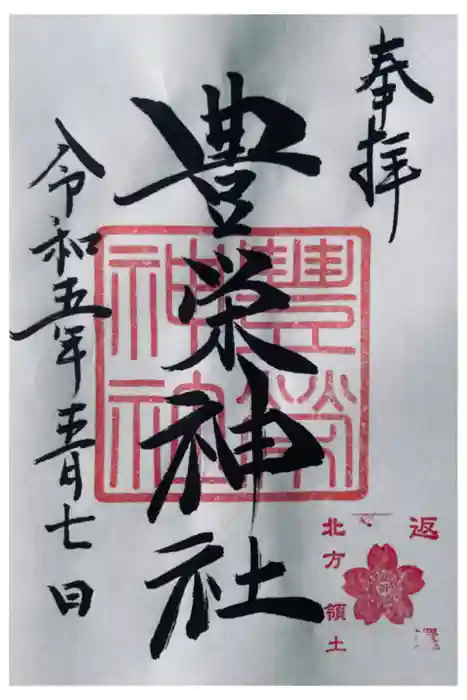 奉拝
豊榮神社
豊榮神社
令和五年五月七日
返
北方領土